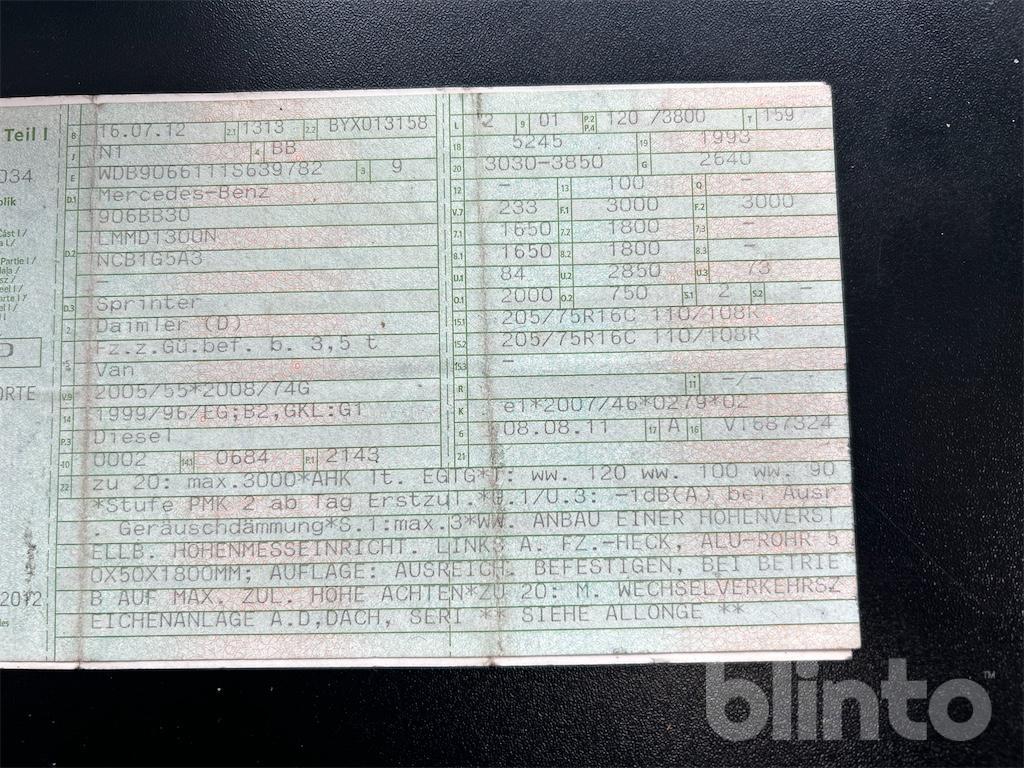 Teil I
034
ORTE
2012
B 16.07.12 2.1 1313 2.2 BYX013158
J N1 4 BB
E WDB9066111S639782 3 9
D.1 Mercedes-Benz
906BB30
LMMD1300N
D.2 NCB1G5A3
-
D.3 Sprinter
2 Daimler (D)
Fz.z.Gü.bef. b. 3,5 t
5 Van
V.9 2005/55*2008/74G
14 1999/96/EG;B2,GKL:G1
P.3 Diesel
10 0002 14.1 0684 P.1 2143
L 2 9 01 P.2 P.4 120 /3800 T 159
18 5245 19 1993
20 3030-3850 G 2640
12 - 13 100 Q -
V.7 233 F.1 3000 F.2 3000
7.1 1650 7.2 1800 7.3 -
8.1 1650 8.2 1800 8.3 -
U.1 84 U.2 2850 U.3 73
O.1 2000 O.2 750 S.1 2 S.2 -
15.1 205/75R16C 110/108R
15.2 205/75R16C 110/108R
15.3 -
R 11 -/-
K e1*2007/46*0279*02
6 08.08.11 17 A 16 VT687324
21
22 zu 20: max.3000*AHK lt. EGTG*T: ww. 120 ww. 100 ww. 90
*Stufe PMK 2 ab Tag Erstzul.*U.1/U.3: -1dB(A) bei Ausr
. Geräuschdämmung*S.1:max.3*WW. ANBAU EINER HÖHENVERST
ELLB. HÖHENMESSEINRICHT. LINKS A. FZ.-HECK, ALU-ROHR 5
0X50X1800MM; AUFLAGE: AUSREICH. BEFESTIGEN, BEI BETRIE
B AUF MAX. ZUL. HÖHE ACHTEN*ZU 20: M. WECHSELVERKEHRSZ
EICHENANLAGE A.D,DACH, SERI ** SIEHE ALLONGE **
blinto™